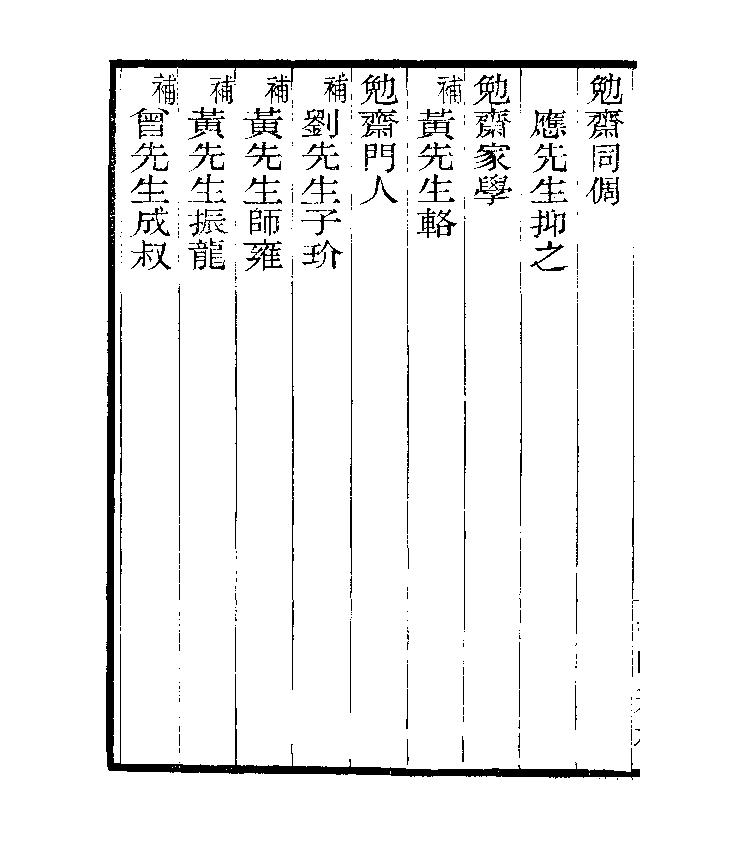 勉齋同倜
應先生抑之
勉齋家學
補黃先生輅
勉齋門人
補劉先生子玠
補黃先生師雍
補黃先生振龍
補曾先生成叔